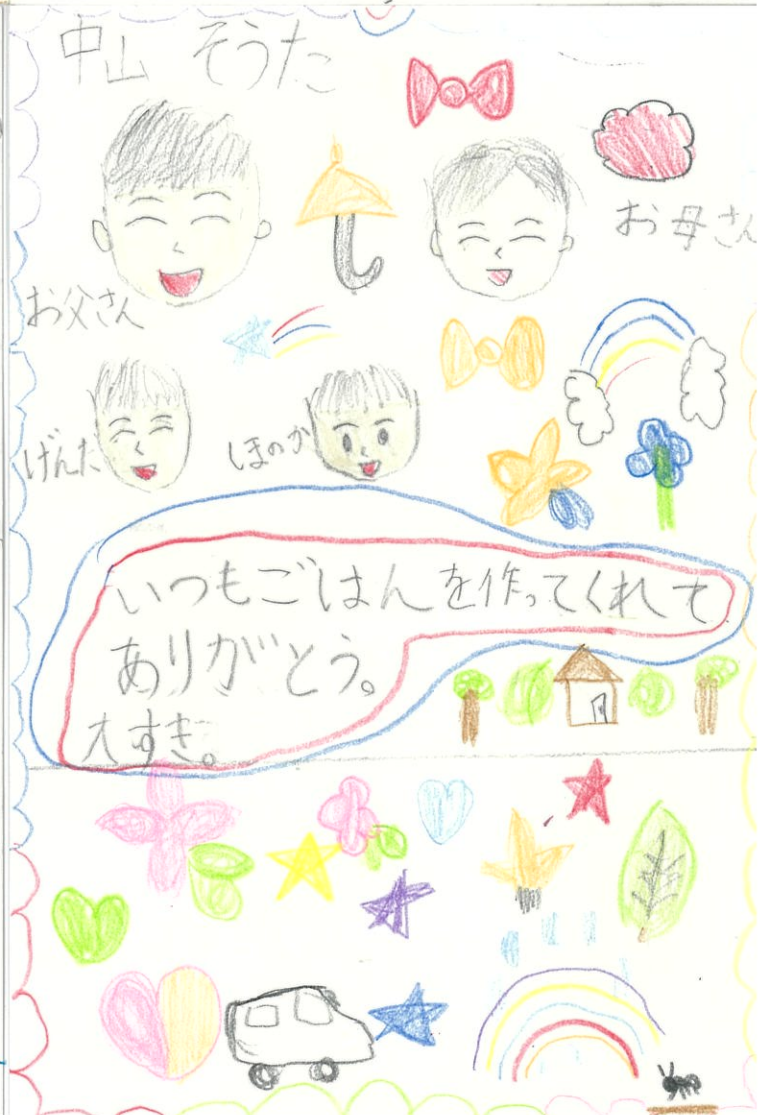 中山 そうた
お母さん
お父さん
げんた
ほのか
いつもごはんを作ってくれて
ありがとう。
大すき。